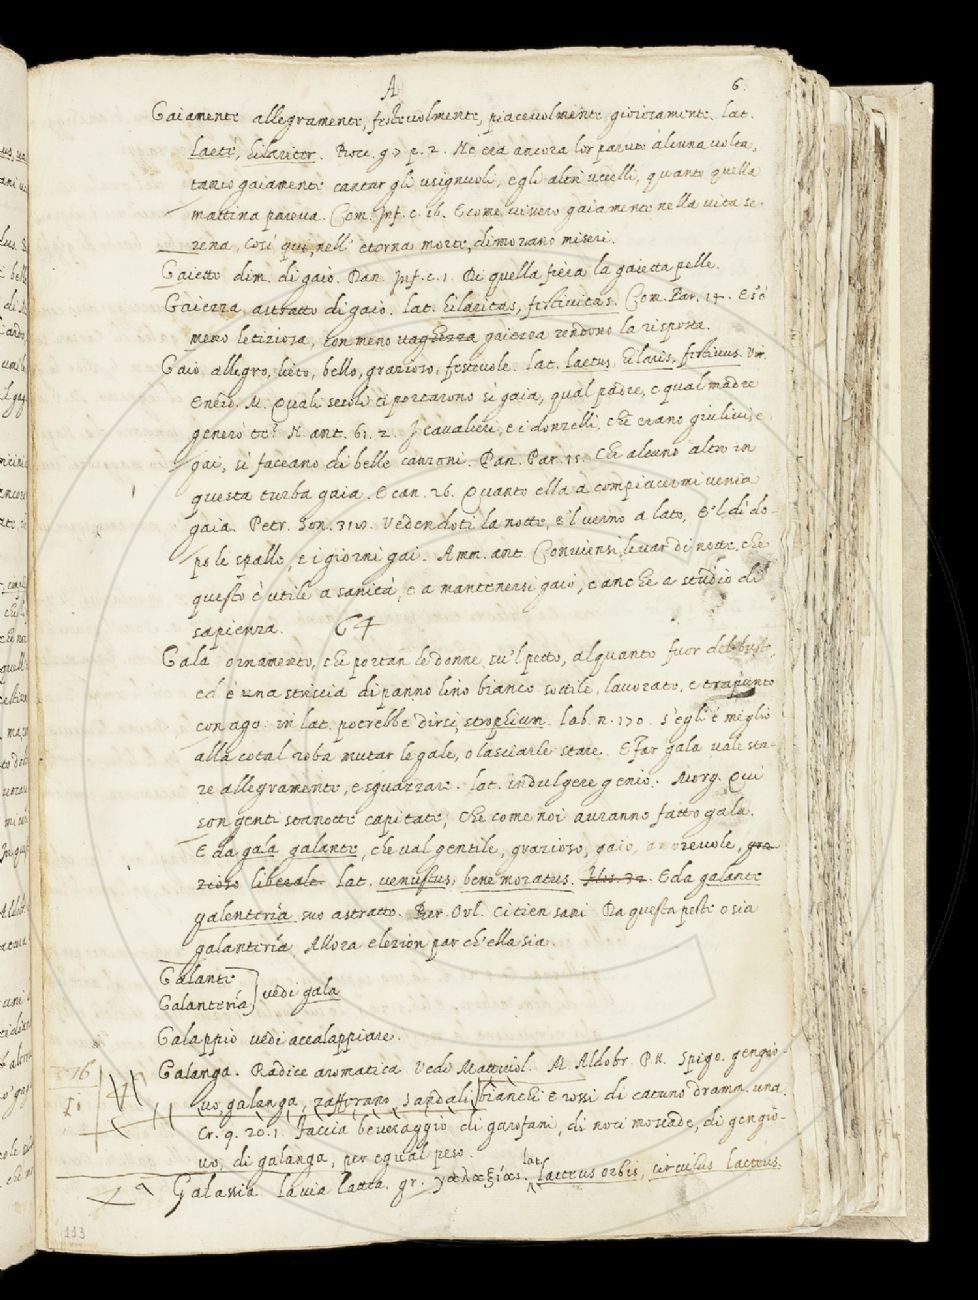 A 6.
Gaiamente allegramente, festevolmente, piacevolmente giosamente. lat.
laetè, hilariter. Bocc. g7 p. 2. Ne era ancora lor paruto alcuna volta,
tanto gaiamente cantar gli usignuoli, e gli altri uccelli, quanto quella
mattina pareva. Com. Inf. c. 16. E come vivero gaiamente nella vita se-
rena, così qui, nell' eterna morte, dimorano miseri.
Gaietto dim. di gaio. Dan. Inf. c. 1. Di quella fiera la gaietta pelle.
Gaiezza astratto di gaio. lat. hilaritas, festivitas. Com. Par. 14. E s'è
meno letiziosa, con meno vaghezza gaiezza rendono la risposta.
Gaio allegro, lieto, bello, grazioso, festevole. lat. laetus, hilaris, festivus. Vir.
Eneid. M. Quali secoli ti portarono sì gaia, qual padre, e qual madre
generò te? N. ant. 61. 2. I cavalieri, e i donzelli, che erano giulivi, e
gai, si faceano di belle canzoni. Dan. Par. 15. Che alcuno altro in
questa turba gaia. E can. 26. Quanto ella a compiacermi venia
gaia. Petr. Son. 312. Vedendoti la notte, e 'l verno a lato, E 'l dì do-
po le spalle, e i giorni gai. Amm. ant. Conviensi levar di notte, che
questo è utile a sanità, e a mantenersi gaio, e anche a studio di
sapienza. 64
Gala ornamento, che portan le donne su 'l petto, alquanto fuor del busto,
ed è una striscia di panno lino bianco sottile, lavorato, e trapunto
con ago. in lat. potrebbe dirsi strophium. Lab. n. 170. S'egli è meglio
alla cotal roba mutar le gale, o lasciarle stare. E Far gala vale sta-
re allegramente, e sguazzare. lat. indulgere genio. Morg. Qui
son genti stanotte capitate, Che come noi avranno fatto gala.
E da gala galante, che val gentile, grazioso, gaio, amorevole, gra-
zioso liberale lat. venustus, bene moratus. E da galante
galenteria suo astratto. Ber. Orl. Da questa peste o sia
galanteria Allora elezion par ch' ella sia.
Galante
Galanteria } vedi gala
Galappio vedi accalappiare.
Galanga. Radice aromatica Vedi Mattiuol. M. Aldobr. P. N. Spigo. gengio-
16
vo, galanga, zafferano, sandali bianchi e rossi di catuno dramm. una.
Cr. 9. 20. 1. Faccia beveraggio di garofani, di noci moscade, di gengio-
vo, di galanga, per egual peso.
Galassia. la via lattea. gr. γαλαξίας. lat. lacteus orbis, circulus lacteus.
113